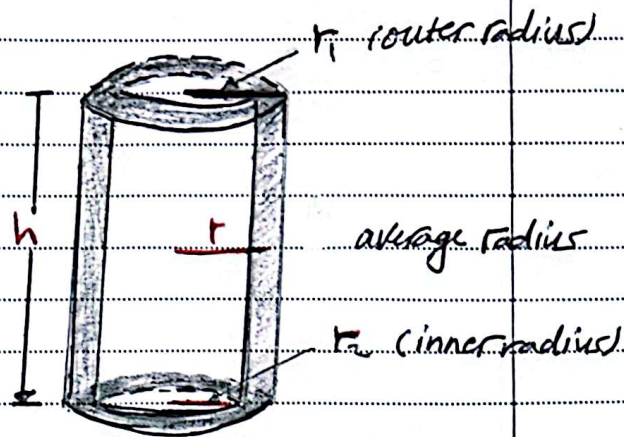 r₁ (outer radius)
h
r
average radius
r₂ (inner radius)